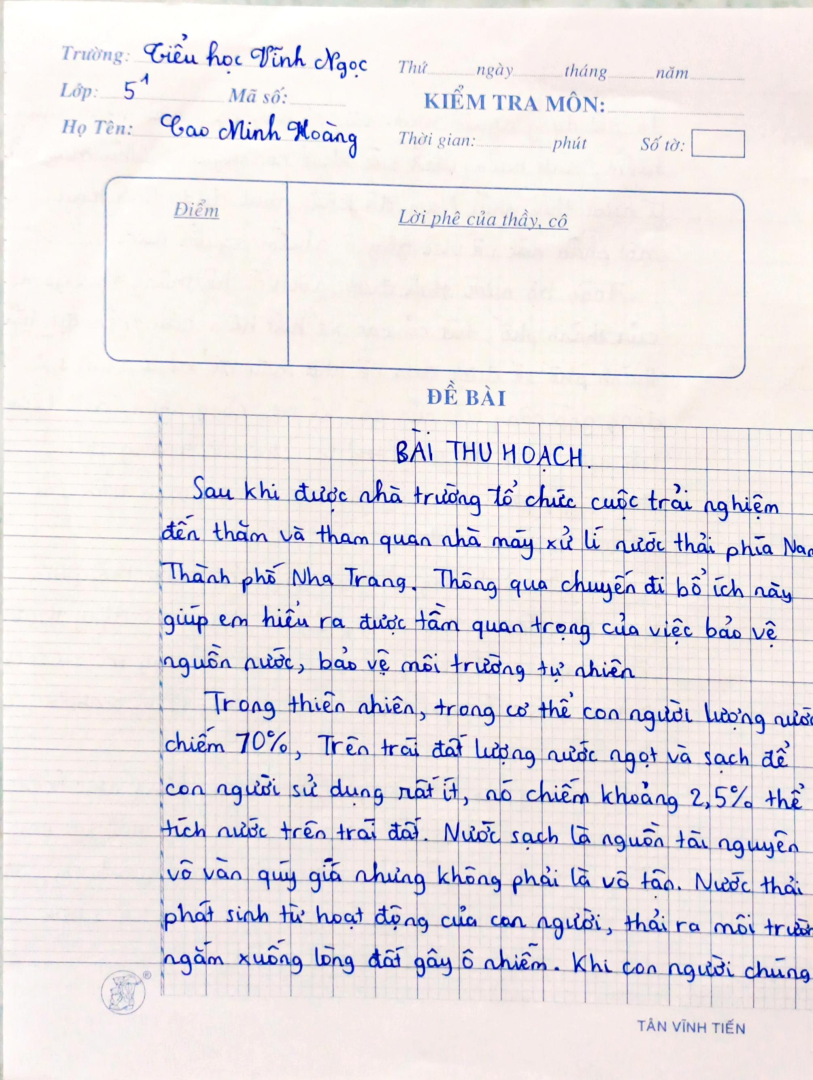 Trường: Tiểu học Vĩnh Ngọc
Thứ ngày tháng năm
Lớp: 5¹ Mã số:
KIỂM TRA MÔN:
Họ Tên: Cao Minh Hoàng
Thời gian: phút Số tờ:
Điểm
Lời phê của thầy, cô
ĐỀ BÀI
BÀI THU HOẠCH.
Sau khi được nhà trường tổ chức cuộc trải nghiệm
đến thăm và tham quan nhà máy xử lí nước thải phía Nam
Thành phố Nha Trang. Thông qua chuyến đi bổ ích này
giúp em hiểu ra được tầm quan trọng của việc bảo vệ
nguồn nước, bảo vệ môi trường tự nhiên
Trong thiên nhiên, trong cơ thể con người lượng nước
chiếm 70%, Trên trái đất lượng nước ngọt và sạch để
con người sử dụng rất ít, nó chiếm khoảng 2,5% thể
tích nước trên trái đất. Nước sạch là nguồn tài nguyên
vô vàn quý giá nhưng không phải là vô tận. Nước thải
phát sinh từ hoạt động của con người, thải ra môi trường
ngấm xuống lòng đất gây ô nhiễm. Khi con người chúng
®
TÂN VĨNH TIẾN